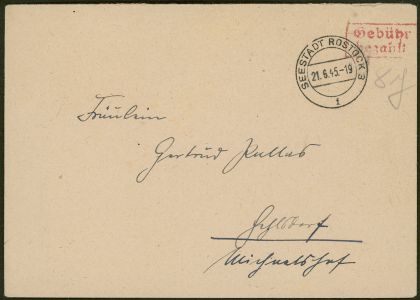 Gebühr
bezahlt
SEESTADT ROSTOCK 3
21.6.45.-19
1
Fräulein
Gertrud Kullas
Gehlsdorf
Michaelshof